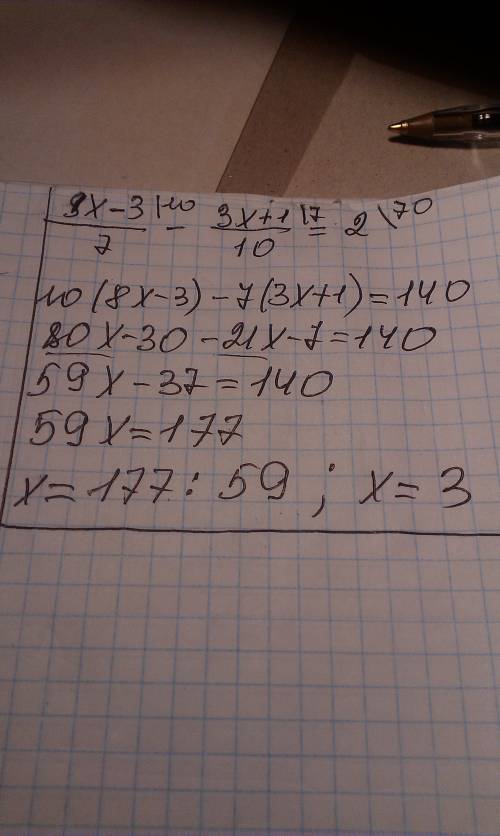 8x-3\10 / 7 - 3x+1\7 / 10 = 2\70
10(8x-3)-7(3x+1)=140
80x-30-21x-7=140
59x-37=140
59x=177
x=177:59; x=3